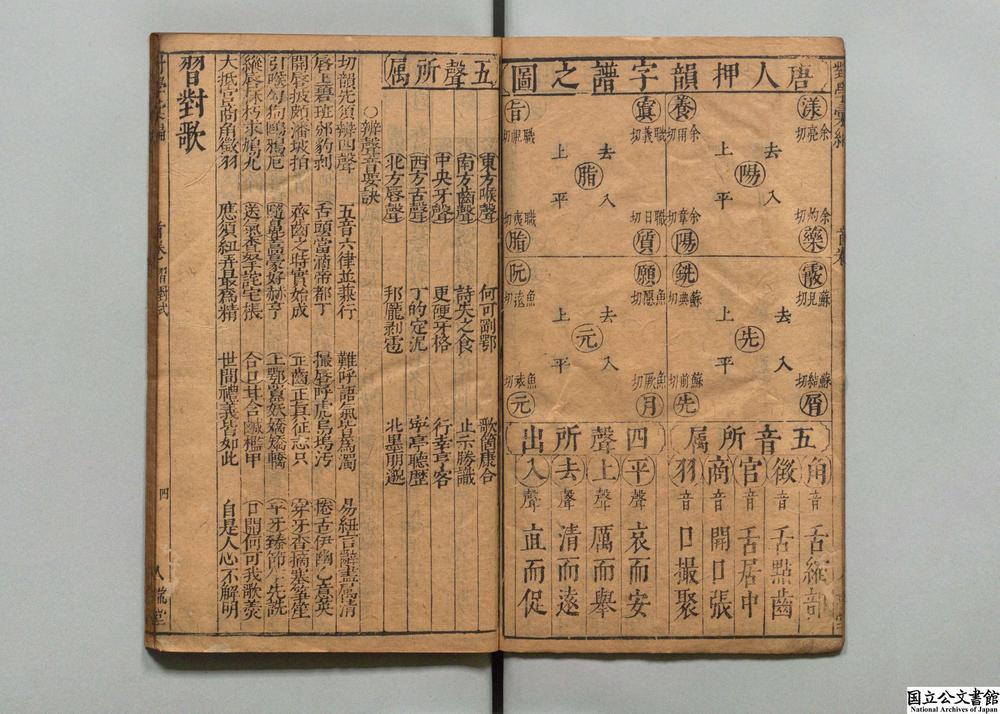 唐人押韻字譜之圖
漾 余亮切
養 余用切
去
上
陽
入
平
藥 余灼切
陽 余章切
寘 職義切
旨 職視切
去
上
脂
入
平
質 職日切
脂 職夷切
霰 蘇見切
銑 蘇典切
去
上
先
入
平
屑 蘇結切
先 蘇前切
願 魚愿切
阮 魚遠切
去
上
元
入
平
月 魚厥切
元 魚袁切
五音所属
角音 舌縮
徵音 舌點齒
宫音 舌居中
商音 開口張
羽音 口撮聚
四聲所出
平聲 哀而安
上聲 厲而舉
去聲 清而遠
入聲 直而促
五聲所属
東方喉聲 何可剖鄂 歌簡康合
南方齒聲 詩失之食 止示勝識
中央牙聲 更硬牙格 行幸亨客
西方舌聲 丁的定泥 寧亭聽歷
北方唇聲 邦龎剥雹 北墨朋邈
○辨聲音要訣
切韻先須辨四聲 五音六律並兼行 難呼語氣皆爲濁 易紐言辭盡属清
唇上碧班邠豹剥 舌頭當滴帝都丁 撮唇呼虎烏塢汚 捲舌伊幽乙意英
開唇披頗潘坡拍 齊齒之時實始成 正齒正真征志只 穿牙查摘塞箏笙
引喉勾狗鷗鴉厄 上鄂囂妖嬌矯轎 平牙臻節先詵
送氣查拏詫宅張 合口甘含鹹檻甲 口開何可我歌羮
大抵宫商角徵羽 應須紐弄最爲精 世間禮義皆如此 自是人心不解明
習對歌
四